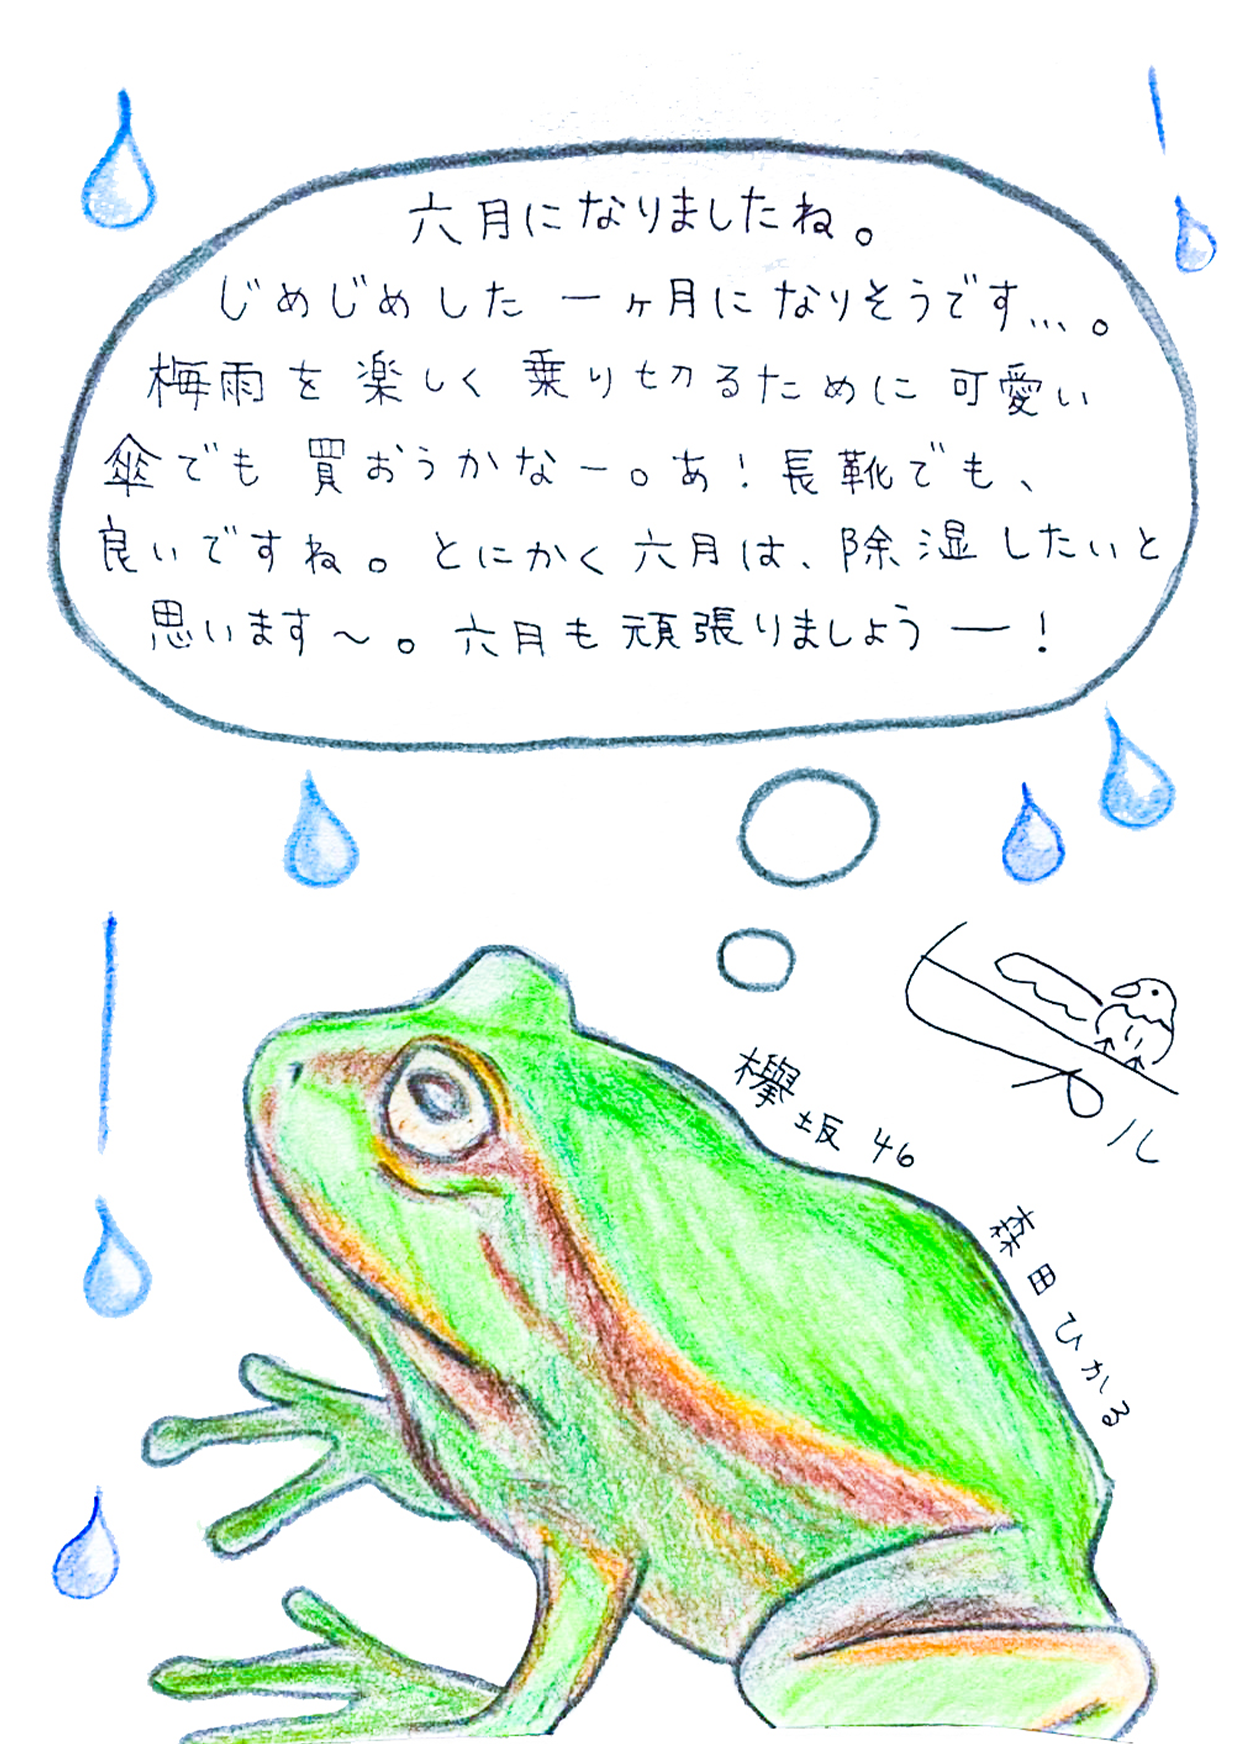 六月になりましたね。
じめじめした一ヶ月になりそうです...。
梅雨を楽しく乗り切るために可愛い
傘でも買おうかなー。あ！長靴でも、
良いですね。とにかく六月は、除湿したいと
思います～。六月も頑張りましょうー！
欅坂46
森田ひかる
ル